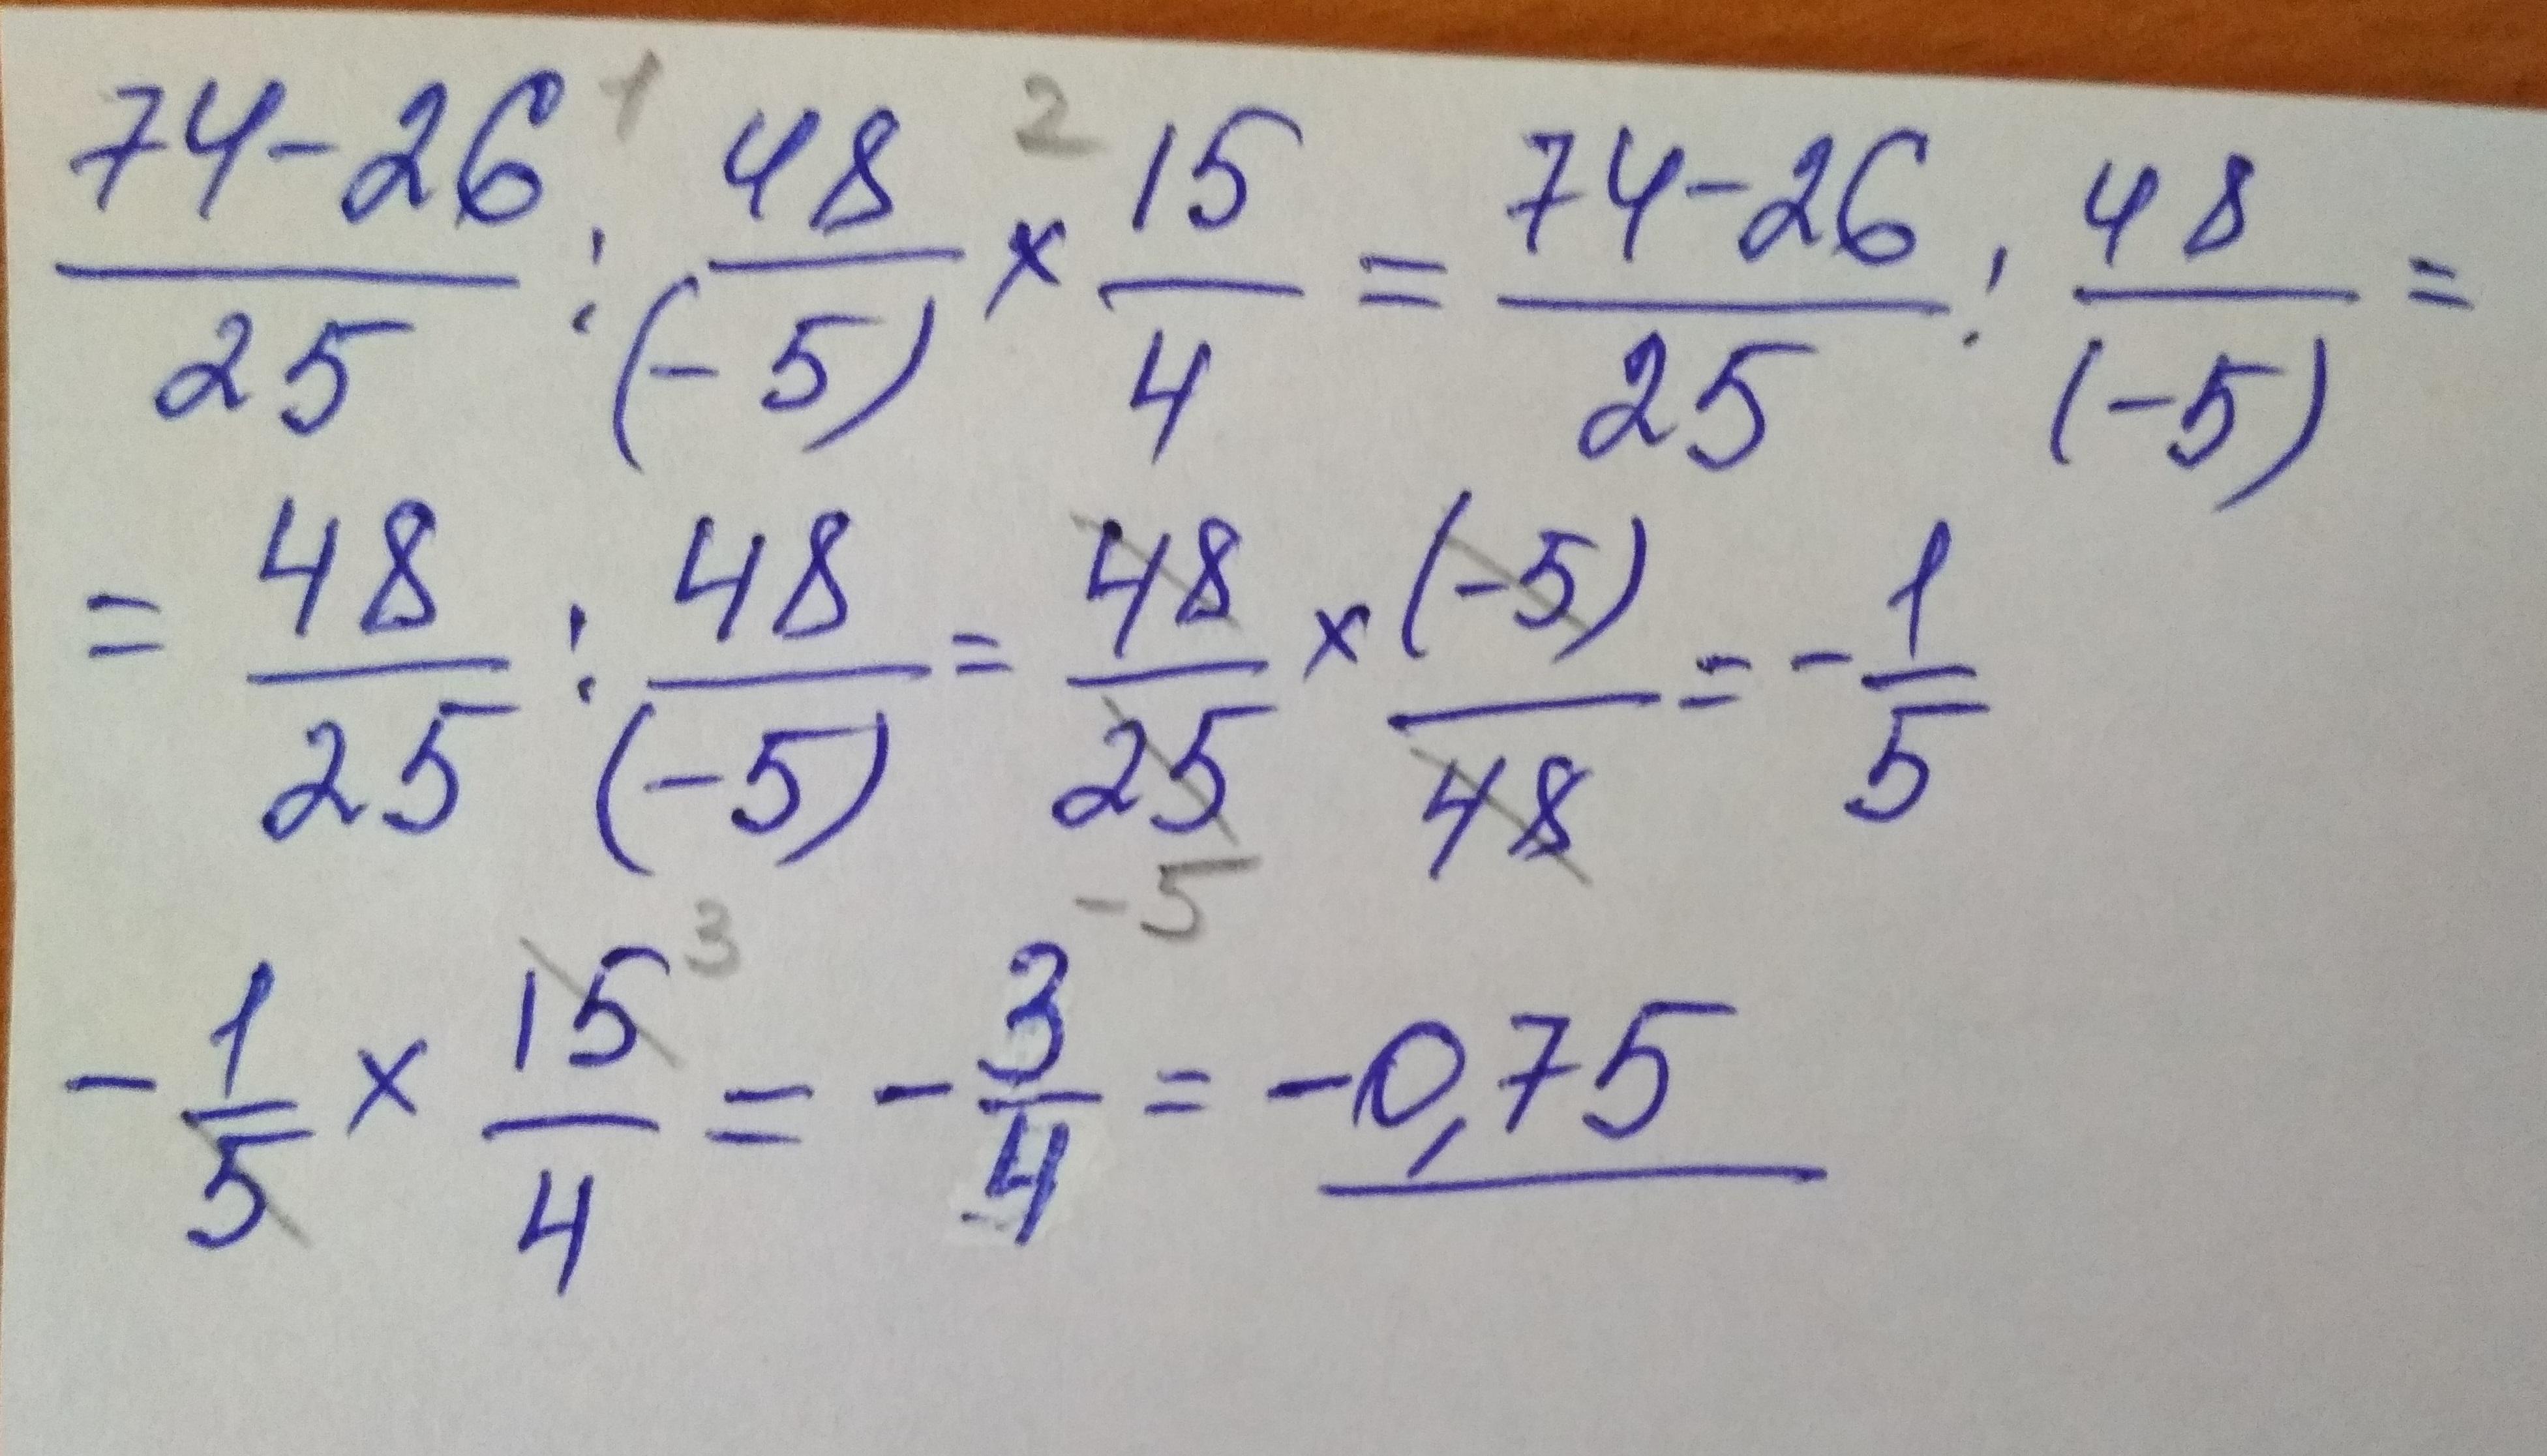 74-26/25 : 48/(-5) × 15/4 = 74-26/25 : 48/(-5) =
= 48/25 : 48/(-5) = 48/25 × (-5)/48 = - 1/5
- 1/5 × 15/4 = - 3/4 = -0,75